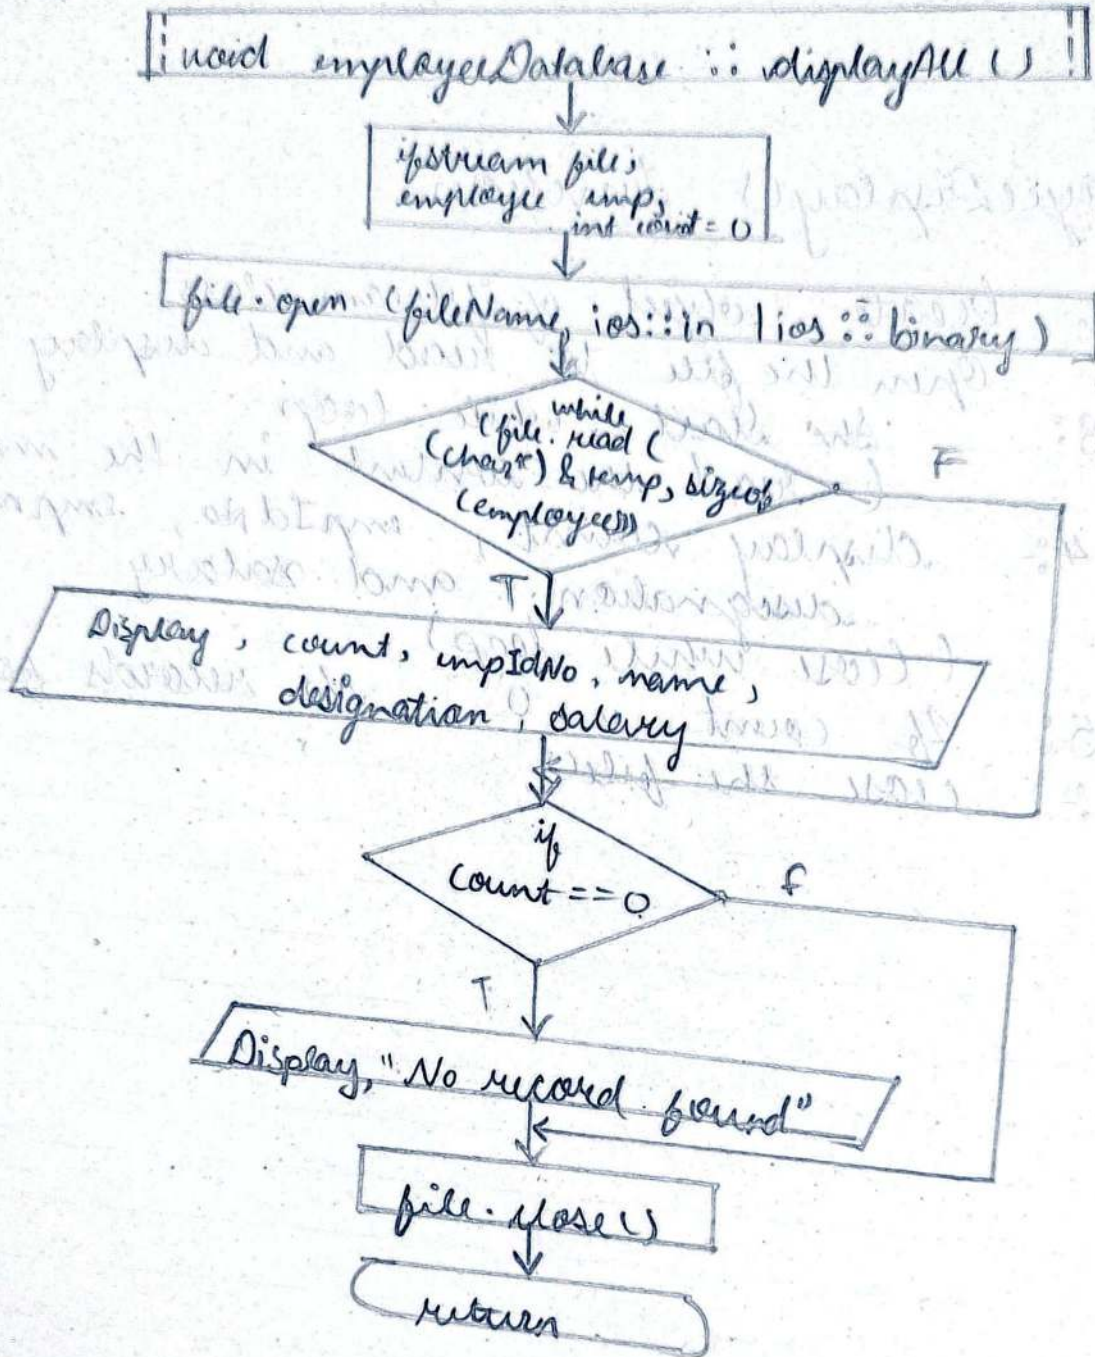 void employeeDatabase :: displayAll ()
ifstream file;
employee emp;
int count = 0
file.open (fileName, ios::in | ios::binary)
while
(file.read (
(char*) & emp, sizeof
(employee)))
F
T
Display, count, empIdNo, name,
designation, salary
if
count == 0
F
T
Display, "No record found"
file.close()
return